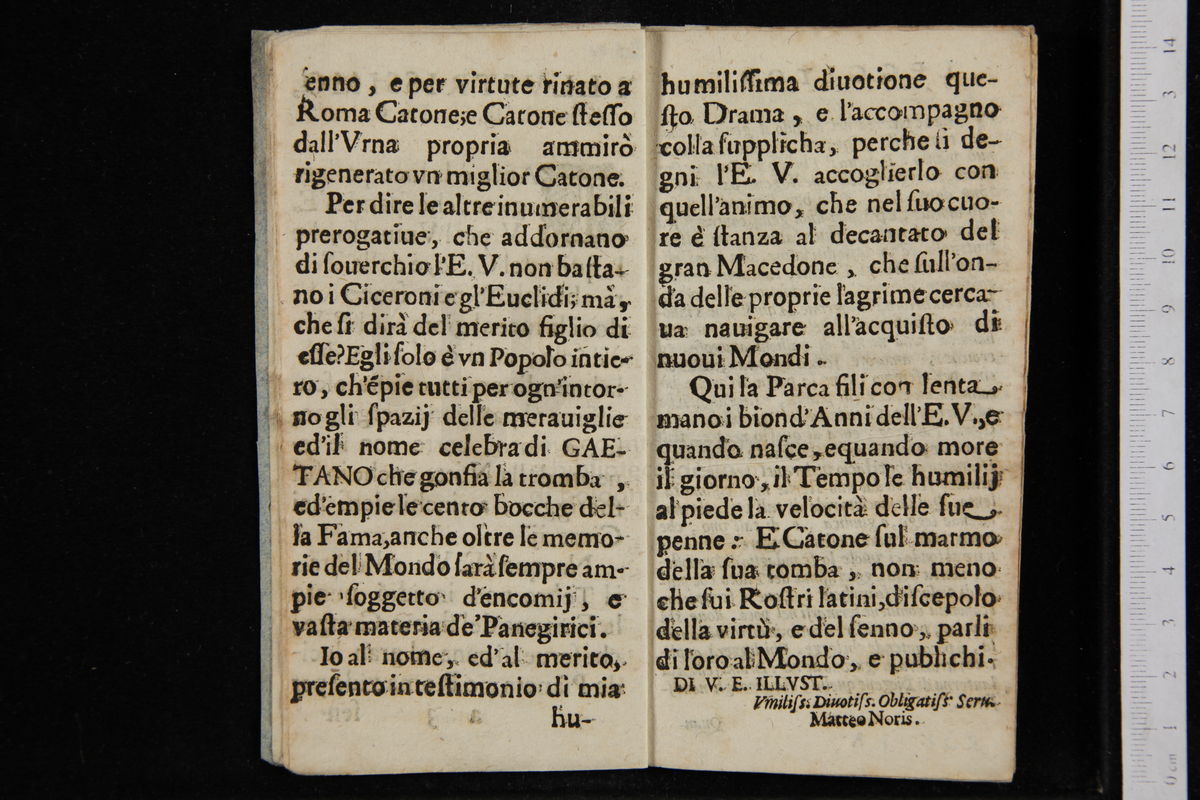 enno, e per virtute rinato a
Roma Catone; e Catone ſteſſo
dall'Vrna propria ammirò
rigenerato vn miglior Catone.
Per dire le altre inumerabili
prerogatiue, che addornano
di ſouerchio l'E. V. non baſta-
no i Ciceroni e gl'Euclidi; mà,
che ſi dirà del merito figlio di
eſſe? Egli ſolo è vn Popolo intie-
ro, ch'épie tutti per ogn'intor-
no gli ſpazij delle merauiglie
ed'il nome celebra di GAE-
TANO che gonfia la tromba,
ed'empie le cento bocche del-
la Fama, anche oltre le memo-
rie del Mondo ſarà ſempre am-
pie ſoggetto d'encomij, e
vaſta materia de'Panegirici.
Io al nome, ed'al merito,
preſento in teſtimonio di mia
hu-
humiliſſima diuotione que-
ſto Drama, e l'accompagno
colla ſupplicha, perche ſi de-
gni l'E. V. accoglierlo con
quell'animo, che nel ſuo cuo-
re è ſtanza al decantato del
gran Macedone, che ſull'on-
da delle proprie lagrime cerca-
ua nauigare all'acquiſto di
nuoui Mondi.
Qui la Parca fili con lenta
mano i biond'Anni dell'E. V., e
quando naſce, equando more
il giorno, il Tempo le humilij
al piede la velocità delle ſue
penne: E Catone ſul marmo
della ſua tomba, non meno
che ſui Roſtri latini, diſcepolo
della virtù, e del ſenno, parli
di loro al Mondo, e publichi.
DI V. E. ILLVST.
Vmiliſs. Diuotiſs. Obligatiſs Seru.
Matteo Noris.
0 cm 1 2 3 4 5 6 7 8 9 10 11 12 3 14